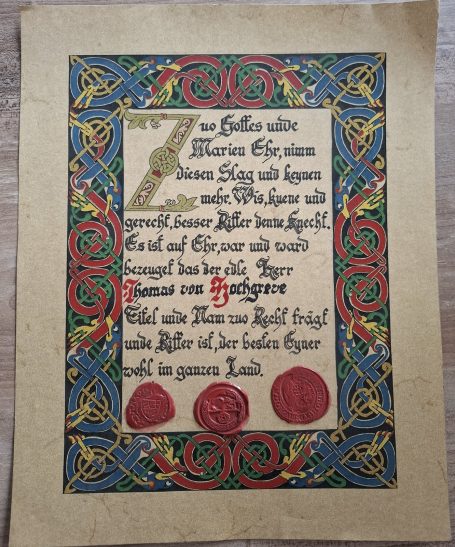 Zuo Gottes unde
Marien Ehr, nimm
diesen Slag und keynen
mehr. Wis, kuene und
gerecht, besser Ritter denne Knecht.
Es ist auf Ehr, war und ward
bezeuget das der edle Herr
Thomas von Hochgreve
Titel unde Nam zuo Recht trägt
unde Ritter ist, der besten Eyner
wohl im ganzen Land.